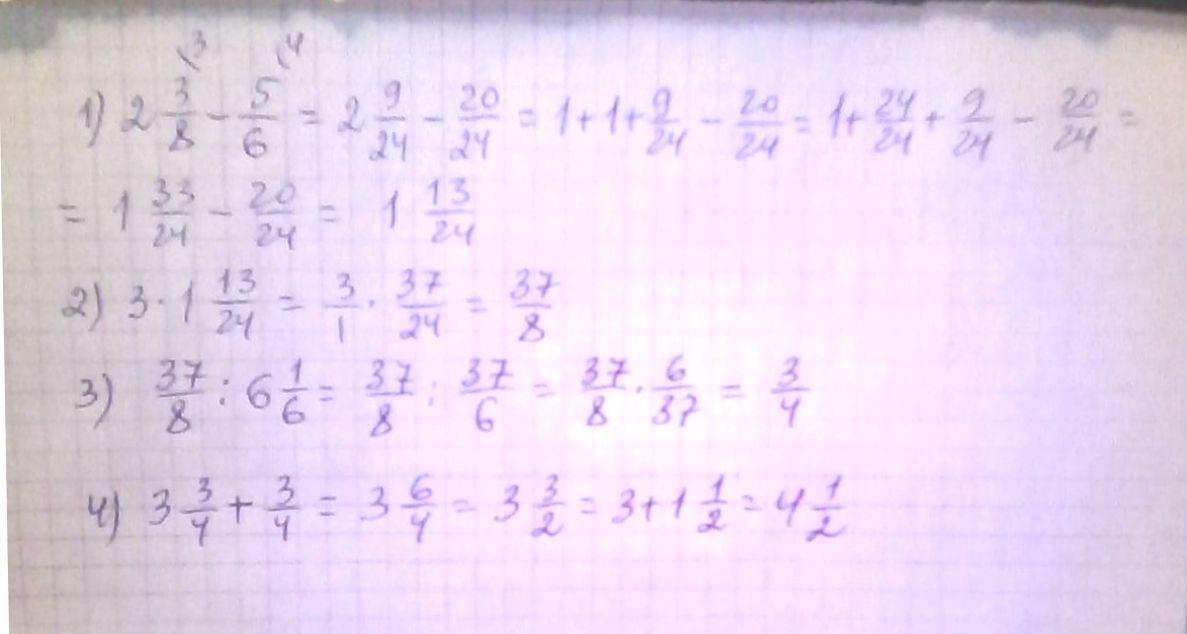 1) 2 3/8 \3 - 5/6 \4 = 2 9/24 - 20/24 = 1+1+9/24 - 20/24 = 1+24/24+9/24 - 20/24 =
= 1 33/24 - 20/24 = 1 13/24
2) 3·1 13/24 = 3/1 · 37/24 = 37/8
3) 37/8 : 6 1/6 = 37/8 : 37/6 = 37/8 · 6/37 = 3/4
4) 3 3/4 + 3/4 = 3 6/4 = 3 3/2 = 3+1 1/2 = 4 1/2